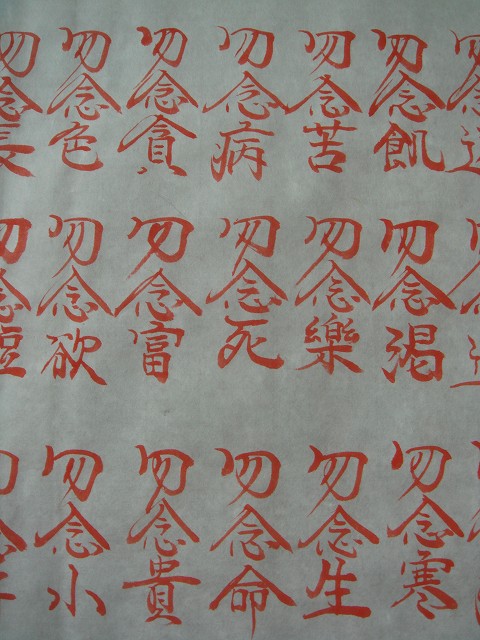 勿念飢勿念渴勿念寒
勿念苦勿念樂勿念生
勿念病勿念死勿念命
勿念貧勿念富勿念貴
勿念色勿念欲勿念小
勿念長勿念短